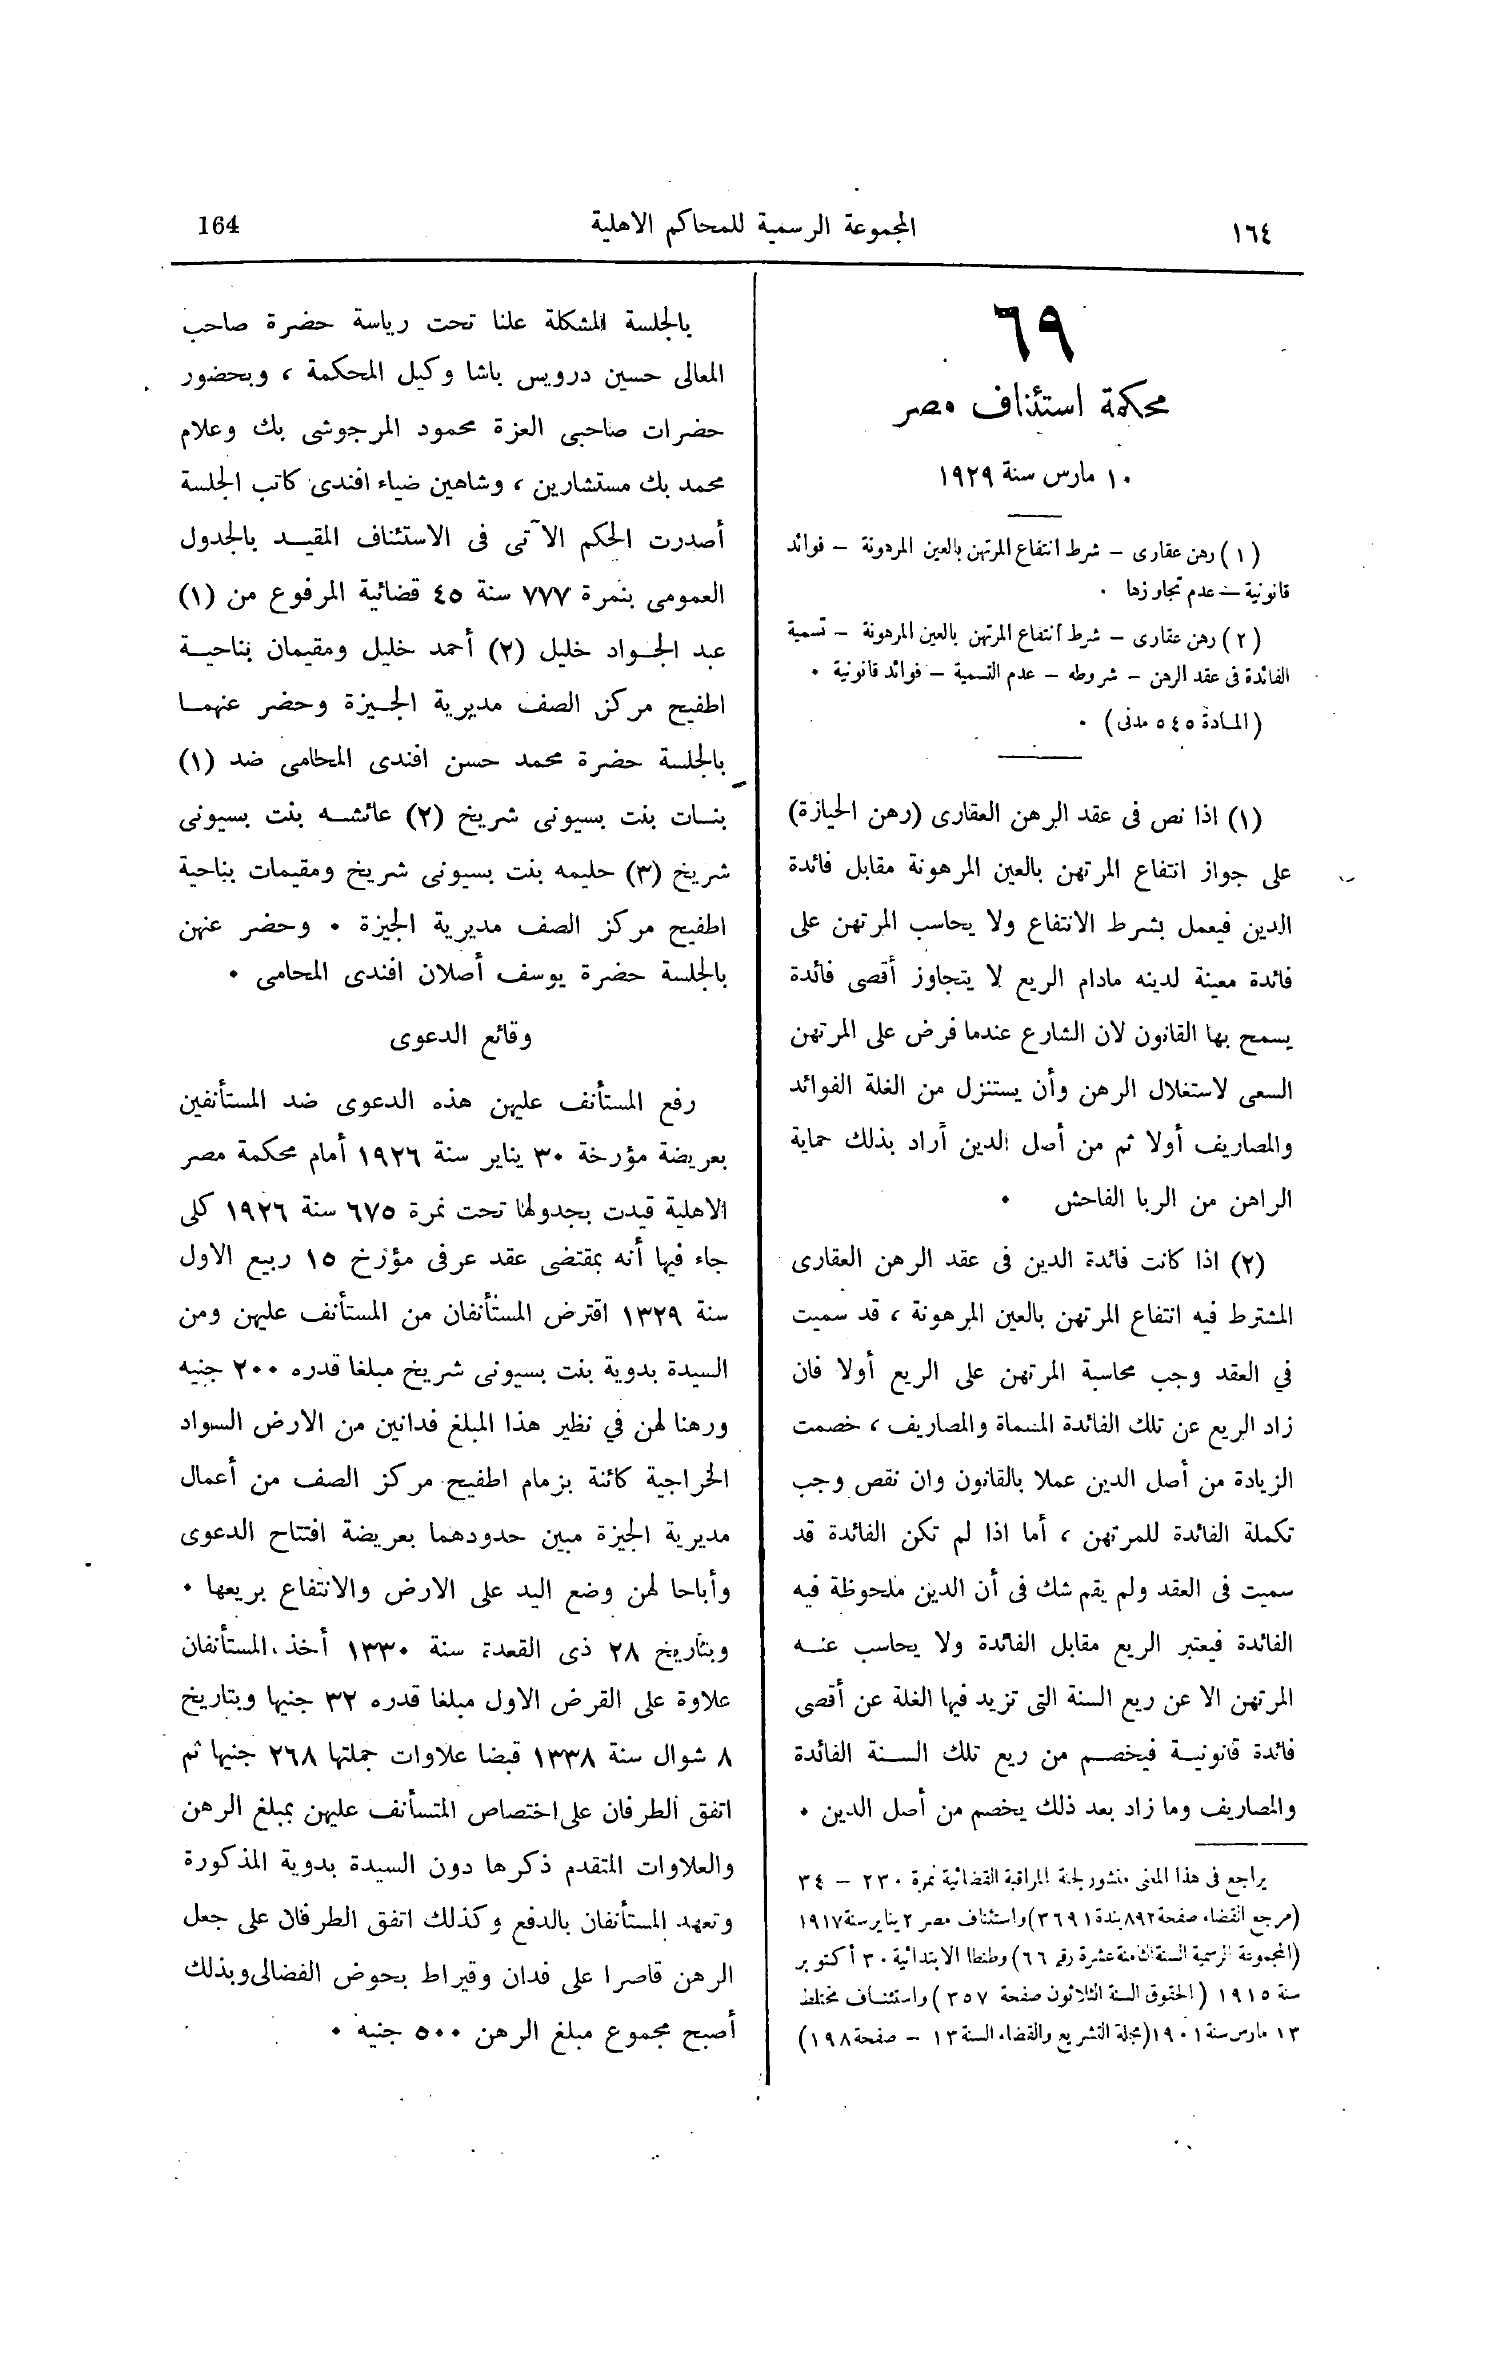 ١٦٤
المجموعة الرسمية للمحاكم الاهلية
164
٦٩
محكمة استئناف مصر
١٠ مارس سنة ١٩٢٩
(١) رهن عقارى – شرط انتفاع المرتهن بالعين المرهونة – فوائد
قانونية – عدم تجاوزها ٠
(٢) رهن عقارى – شرط انتفاع المرتهن بالعين المرهونة – تسمية
الفائدة فى عقد الرهن – شروطه – عدم التسمية – فوائد قانونية ٠
(المادة ٥٤٥ مدنى) ٠
(١) اذا نص فى عقد الرهن العقارى (رهن الحيازة)
على جواز انتفاع المرتهن بالعين المرهونة مقابل فائدة
الدين فيعمل بشرط الانتفاع ولا يحاسب المرتهن على
فائدة معينة لدينه مادام الريع لا يتجاوز أقصى فائدة
يسمح بها القانون لان الشارع عندما فرض على المرتهن
السعى لاستغلال الرهن وأن يستنزل من الغلة الفوائد
والمصاريف أولا ثم من أصل الدين أراد بذلك حماية
الراهن من الربا الفاحش ٠
(٢) اذا كانت فائدة الدين فى عقد الرهن العقارى
المشترط فيه انتفاع المرتهن بالعين المرهونة ، قد سميت
في العقد وجب محاسبة المرتهن على الريع أولا فان
زاد الريع عن تلك الفائدة المسماة والمصاريف ، خصمت
الزيادة من أصل الدين عملا بالقانون وان نقص وجب
تكملة الفائدة للمرتهن ، أما اذا لم تكن الفائدة قد
سميت فى العقد ولم يقم شك فى أن الدين ملحوظة فيه
الفائدة فيعتبر الريع مقابل الفائدة ولا يحاسب عنه
المرتهن الا عن ريع السنة التى تزيد فيها الغلة عن أقصى
فائدة قانونية فيخصم من ريع تلك السنة الفائدة
والمصاريف وما زاد بعد ذلك يخصم من أصل الدين ٠
يراجع فى هذا المعنى منشور لجنة المراقبة القضائية نمرة ٢٣٠ – ٣٤
(مرجع القضاء صفحة ٨٩٢ بندة ٣٦٩١) واستئناف مصر ٢ يناير سنة ١٩١٧
(المجموعة الرسمية السنة الثامنة عشرة رقم ٦٦) وطنطا الابتدائية ٣٠ أكتوبر
سنة ١٩١٥ (الحقوق السنة الثلاثون صفحة ٣٥٧) واستئناف مختلط
١٣ مارس سنة ١٩٠١ (مجلة التشريع والقضاء السنة ١٣ – صفحة ١٩٨)
بالجلسة المشكلة علنا تحت رياسة حضرة صاحب
المعالى حسين درويس باشا وكيل المحكمة ، وبحضور
حضرات صاحبى العزة محمود المرجوشى بك وعلام
محمد بك مستشارين ، وشاهين ضياء افندى كاتب الجلسة
أصدرت الحكم الآتى فى الاستئناف المقيد بالجدول
العمومى بنمرة ٧٧٧ سنة ٤٥ قضائية المرفوع من (١)
عبد الجواد خليل (٢) أحمد خليل ومقيمان بناحية
اطفيح مركز الصف مديرية الجيزة وحضر عنهما
بالجلسة حضرة محمد حسن افندى المحامى ضد (١)
بنات بنت بسيونى شريخ (٢) عائشه بنت بسيونى
شريخ (٣) حليمه بنت بسيونى شريخ ومقيمات بناحية
اطفيح مركز الصف مديرية الجيزة ٠ وحضر عنهن
بالجلسة حضرة يوسف أصلان افندى المحامى ٠
وقائع الدعوى
رفع المستأنف عليهن هذه الدعوى ضد المستأنفين
بعريضة مؤرخة ٣٠ يناير سنة ١٩٢٦ أمام محكمة مصر
الاهلية قيدت بجدولها تحت نمرة ٦٧٥ سنة ١٩٢٦ كلى
جاء فيها أنه بمقتضى عقد عرفى مؤرخ ١٥ ربيع الاول
سنة ١٣٢٩ اقترض المستأنفان من المستأنف عليهن ومن
السيدة بدوية بنت بسيونى شريخ مبلغا قدره ٢٠٠ جنيه
ورهنا لهن في نظير هذا المبلغ فدانين من الارض السواد
الخراجية كائنة بزمام اطفيح مركز الصف من أعمال
مديرية الجيزة مبين حدودهما بعريضة افتتاح الدعوى
وأباحا لهن وضع اليد على الارض والانتفاع بريعها ٠
وبتاريخ ٢٨ ذى القعدة سنة ١٣٣٠ أخذ المستأنفان
علاوة على القرض الاول مبلغا قدره ٣٢ جنيها وبتاريخ
٨ شوال سنة ١٣٣٨ قبضا علاوات جملتها ٢٦٨ جنيها ثم
اتفق الطرفان على اختصاص المتسأنف عليهن بمبلغ الرهن
والعلاوات المتقدم ذكرها دون السيدة بدوية المذكورة
وتعهد المستأنفان بالدفع وكذلك اتفق الطرفان على جعل
الرهن قاصرا على فدان وقيراط بحوض الفضالى وبذلك
أصبح مجموع مبلغ الرهن ٥٠٠ جنيه ٠